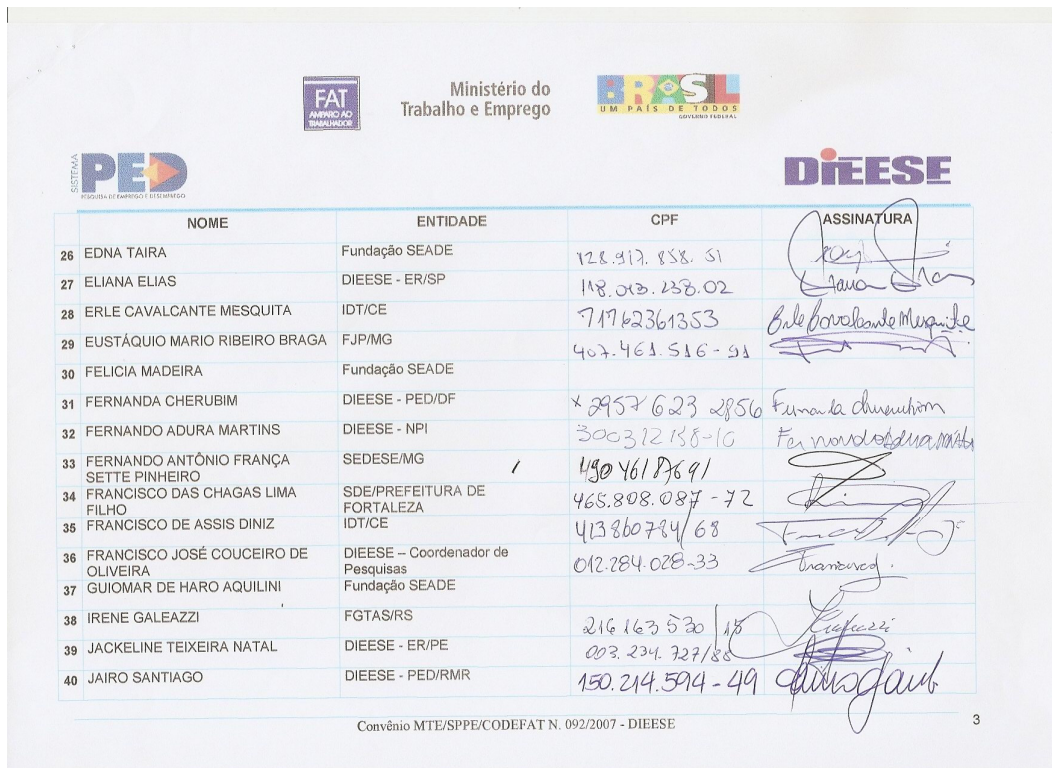 FAT
AMPARO AO
TRABALHADOR
Ministério do
Trabalho e Emprego
BRASIL
UM PAÍS DE TODOS
GOVERNO FEDERAL
SISTEMA
PED
PESQUISA DE EMPREGO E DESEMPREGO
DIEESE
NOME ENTIDADE CPF ASSINATURA
26 EDNA TAIRA Fundação SEADE 128.917.858.51
27 ELIANA ELIAS DIEESE - ER/SP 118.013.238.02
28 ERLE CAVALCANTE MESQUITA IDT/CE 71762361353 Erle Cavalcante Mesquita
29 EUSTÁQUIO MARIO RIBEIRO BRAGA FJP/MG 407.461.516-91
30 FELICIA MADEIRA Fundação SEADE
31 FERNANDA CHERUBIM DIEESE - PED/DF x 2957623 2856 Fernanda Cherubim
32 FERNANDO ADURA MARTINS DIEESE - NPI Fernando Adura Martins
33 FERNANDO ANTÔNIO FRANÇA SEDESE/MG
SETTE PINHEIRO
34 FRANCISCO DAS CHAGAS LIMA SDE/PREFEITURA DE 465.808.087-72
FILHO FORTALEZA
35 FRANCISCO DE ASSIS DINIZ IDT/CE 413860784/68
36 FRANCISCO JOSÉ COUCEIRO DE DIEESE – Coordenador de 012.284.028-33 Francisco
OLIVEIRA Pesquisas
37 GUIOMAR DE HARO AQUILINI Fundação SEADE
38 IRENE GALEAZZI FGTAS/RS 216163530/15
39 JACKELINE TEIXEIRA NATAL DIEESE - ER/PE 003.234.727/88
40 JAIRO SANTIAGO DIEESE - PED/RMR 150.214.594-49
Convênio MTE/SPPE/CODEFAT N. 092/2007 - DIEESE
3